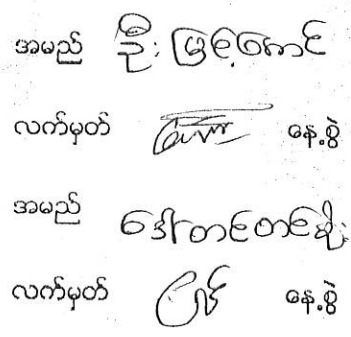 အမည် ဦးမြင့်မောင်
လက်မှတ် နေ့စွဲ
အမည် ဒေါ်တင်တင်စိုး
လက်မှတ် နေ့စွဲ